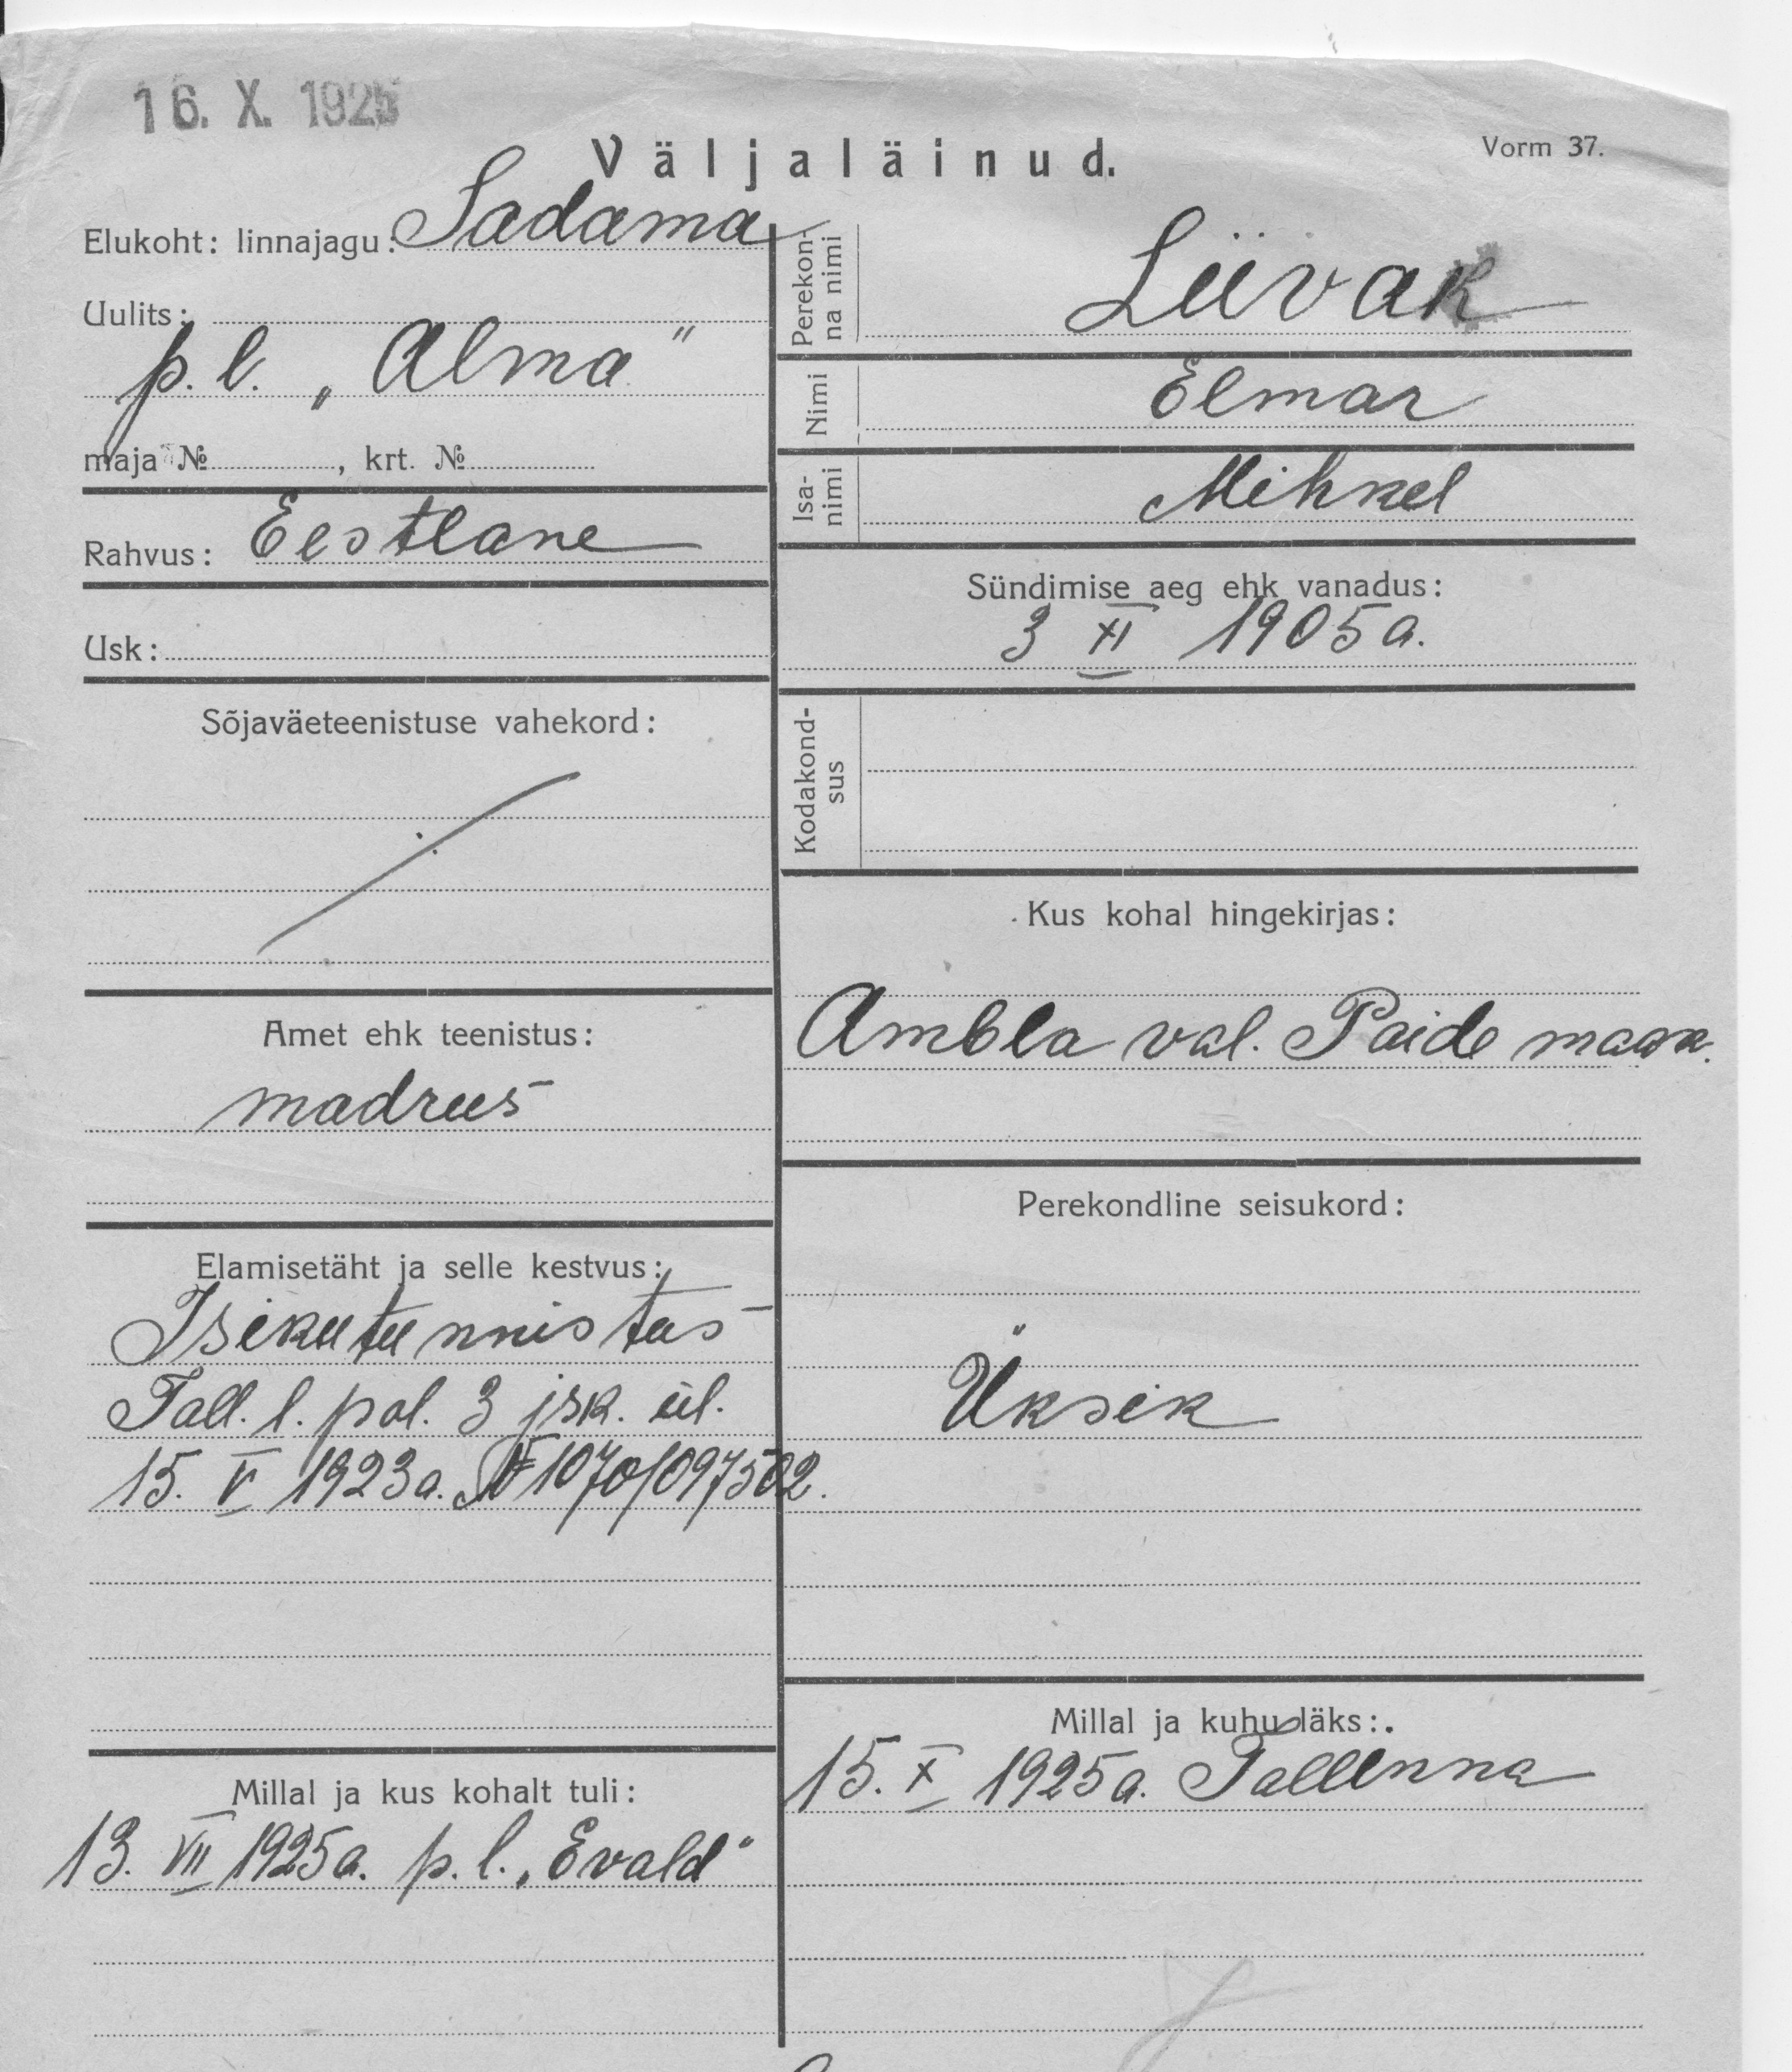 16. X. 1925
Väljaläinud.
Vorm 37.
Elukoht: linnajagu: Sadama
Uulits:
p. l. „Alma"
maja № , krt. №
Rahvus: Eestlane
Usk:
Sõjaväeteenistuse vahekord:
Amet ehk teenistus:
madrus
Elamisetäht ja selle kestvus:
Isikutunnistus
Tall. l. pol. 3 jsk. ül.
15. V 1923 a. № 1070/097502.
Millal ja kus kohalt tuli:
13. VII 1925 a. p. l. „Evald"
Perekon-
na nimi
Liivak
Nimi
Elmar
Isa-
nimi
Mihkel
Sündimise aeg ehk vanadus:
3 XI 1905 a.
Kodakond-
sus
Kus kohal hingekirjas:
Ambla val. Paide maak.
Perekondline seisukord:
Üksik
Millal ja kuhu läks:
15. X 1925 a. Tallinna